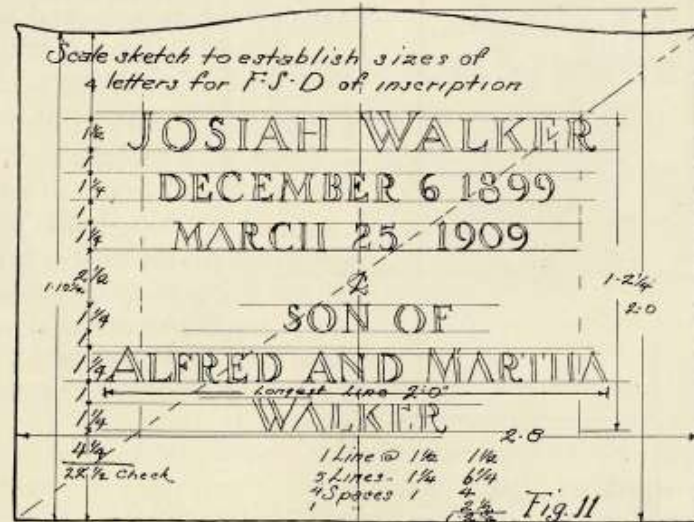 Scale sketch to establish sizes of
4 letters for F·S·D of inscription
1½ JOSIAH WALKER
1
1¼ DECEMBER 6 1899
1
1¼ MARCH 25 1909
2½
1-2¼
2-0
1¼ SON OF
1
1¼ ALFRED AND MARTHA
1 Longest Line 2'-0"
1¼ WALKER
2-8
4¼
22½ Check
1 Line @ 1½ 1½
5 Lines - 1¼ 6¼
4 Spaces 1 4
1 " 2½
Fig. 11